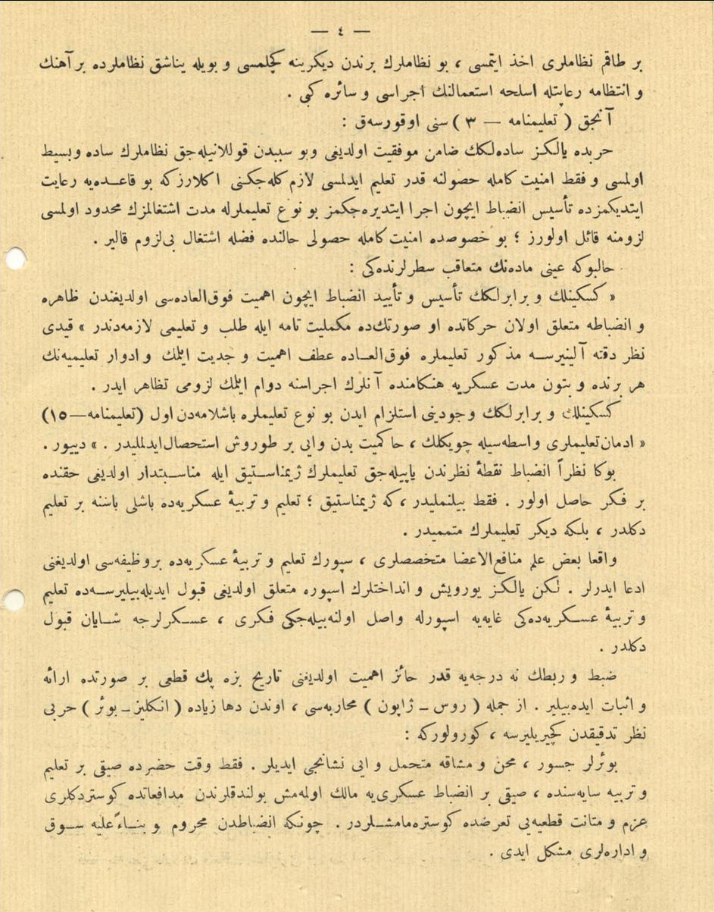 — ٤ —
بر طاقم نظاملری اخذ ایتمسی ، بو نظاملرك برندن دیكرینه كچلمسی و بویله یناشق نظاملرده بر آهنك
و انتظامه رعایتله اسلحه استعمالنك اجراسی و سائره كبی .
آنجق ( تعلیمنامه — ٣ ) سنی اوقورسه‌ق :
حربده یالكز ساده‌لكك ضامن موفقیت اولدیغی وبو سببدن قوللانیله‌جق نظاملرك ساده وبسیط
اولمسی و فقط امنیت كامله حصولنه قدر تعلیم ایدلمسی لازم كله‌جكنی اكلارزكه بو قاعده‌یه رعایت
ایتدیكمزده تأسیس انضباط ایچون اجرا ایتدیره‌جكمز بو نوع تعلیملرله مدت اشتغالمزك محدود اولمسی
لزومنه قائل اولورز ؛ بو خصوصده امنیت كامله حصولی حالنده فضله اشتغال بی‌لزوم قالیر .
حالبوكه عینی ماده‌نك متعاقب سطرلرنده‌كی :
« كسكینلك و برابرلكك تأسیس و تأیید انضباط ایچون اهمیت فوق‌العاده‌سی اولدیغندن ظاهره
و انضباطه متعلق اولان حركاتده او صورتك‌ده مكملیت تامه ایله طلب و تعلیمی لازمه‌دندر » قیدی
نظر دقته آلینیرسه مذكور تعلیملره فوق‌العاده عطف اهمیت و جدیت ایتمك و ادوار تعلیمیه‌نك
هر برنده و بتون مدت عسكریه هنكامنده آنلرك اجراسنه دوام ایتمك لزومی تظاهر ایدر .
كسكینلك و برابرلكك وجودینی استلزام ایدن بو نوع تعلیملره باشلامه‌دن اول (تعلیمنامه—١٥)
« ادمان‌تعلیملری واسطه‌سیله چویكلك ، حاكمیت بدن وایی بر طوروش استحصال‌ایدلملیدر . » دییور .
بوكا نظراً انضباط نقطهٔ نظرندن یاپیله‌جق تعلیملرك ژیمناستیق ایله مناسبتدار اولدیغی حقنده
بر فكر حاصل اولور . فقط بیلنملیدر ، كه ژیمناستیق ؛ تعلیم و تربیهٔ عسكریه‌ده باشلی باشنه بر تعلیم
دكلدر ، بلكه دیكر تعلیملرك متممیدر .
واقعا بعض علم منافع‌الاعضا متخصصلری ، سپورك تعلیم و تربیهٔ عسكریه‌ده بروظیفه‌سی اولدیغنی
ادعا ایدرلر . لكن یالكز یورویش و انداختلرك اسپوره متعلق اولدیغی قبول ایدیله‌بیلیرسه‌ده تعلیم
و تربیهٔ عسكریه‌ده‌كی غایه‌یه اسپورله واصل اولنه‌بیله‌جكی فكری ، عسكرلرجه شایان قبول
دكلدر .
ضبط و ربطك نه درجه‌یه قدر حائز اهمیت اولدیغنی تاریخ بزه پك قطعی بر صورتده ارائه
و اثبات ایده‌بیلیر . از جمله ( روس - ژاپون ) محاربه‌سی ، اوندن دها زیاده ( انكلیز - بوئر ) حربی
نظر تدقیقدن كچیریلیرسه ، كورولوركه :
بوئرلر جسور ، محن و مشاقه متحمل و ایی نشانجی ایدیلر . فقط وقت حضرده صیقی بر تعلیم
و تربیه سایه‌سنده ، صیقی بر انضباط عسكری‌یه مالك اولمه‌مش بولندقلرندن مدافعاتده كوستردكلری
عزم و متانت قطعیه‌یی تعرضده كوستره‌مامشلردر . چونكه انضباطدن محروم و بناءً علیه سوق
و اداره‌لری مشكل ایدی .